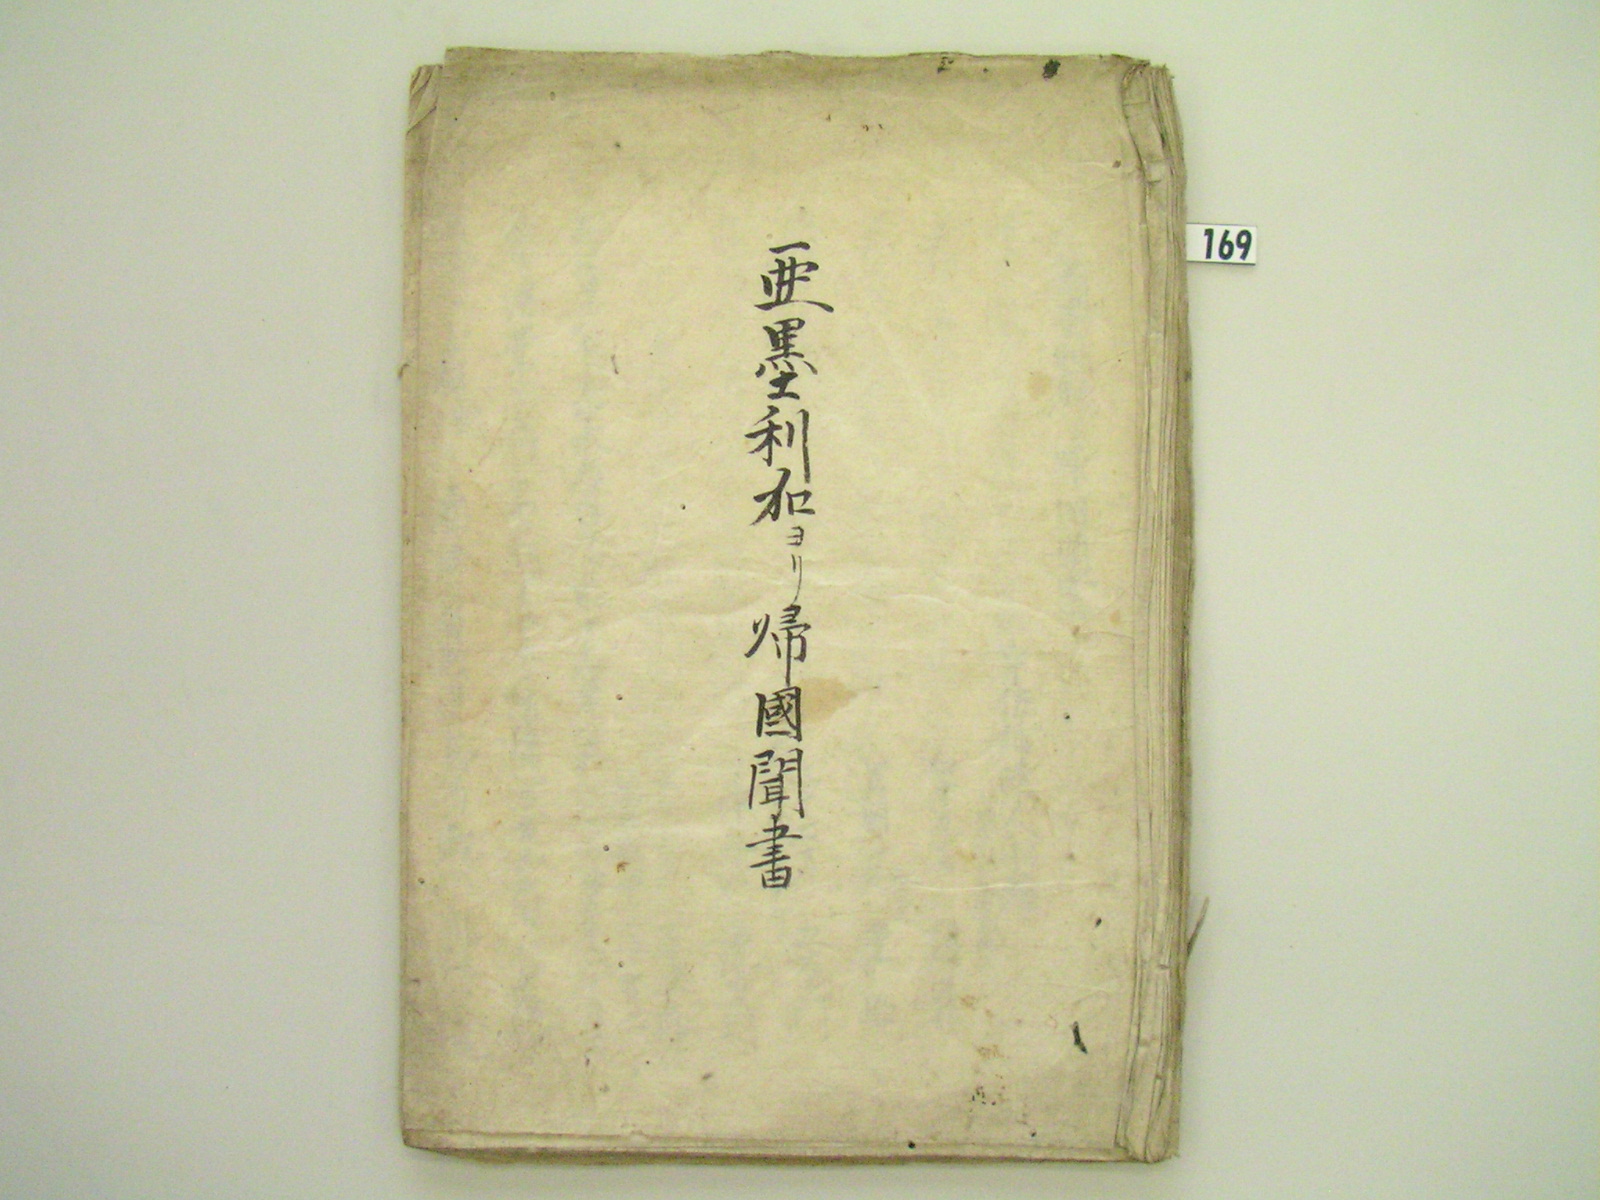 亜墨利加ヨリ帰國聞書
169